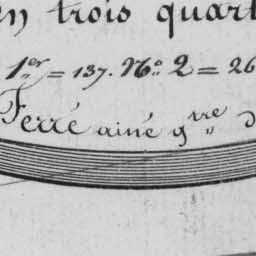 en trois quart
1.er = 137. N.o 2 = 26
Ferré ainé g.vre d